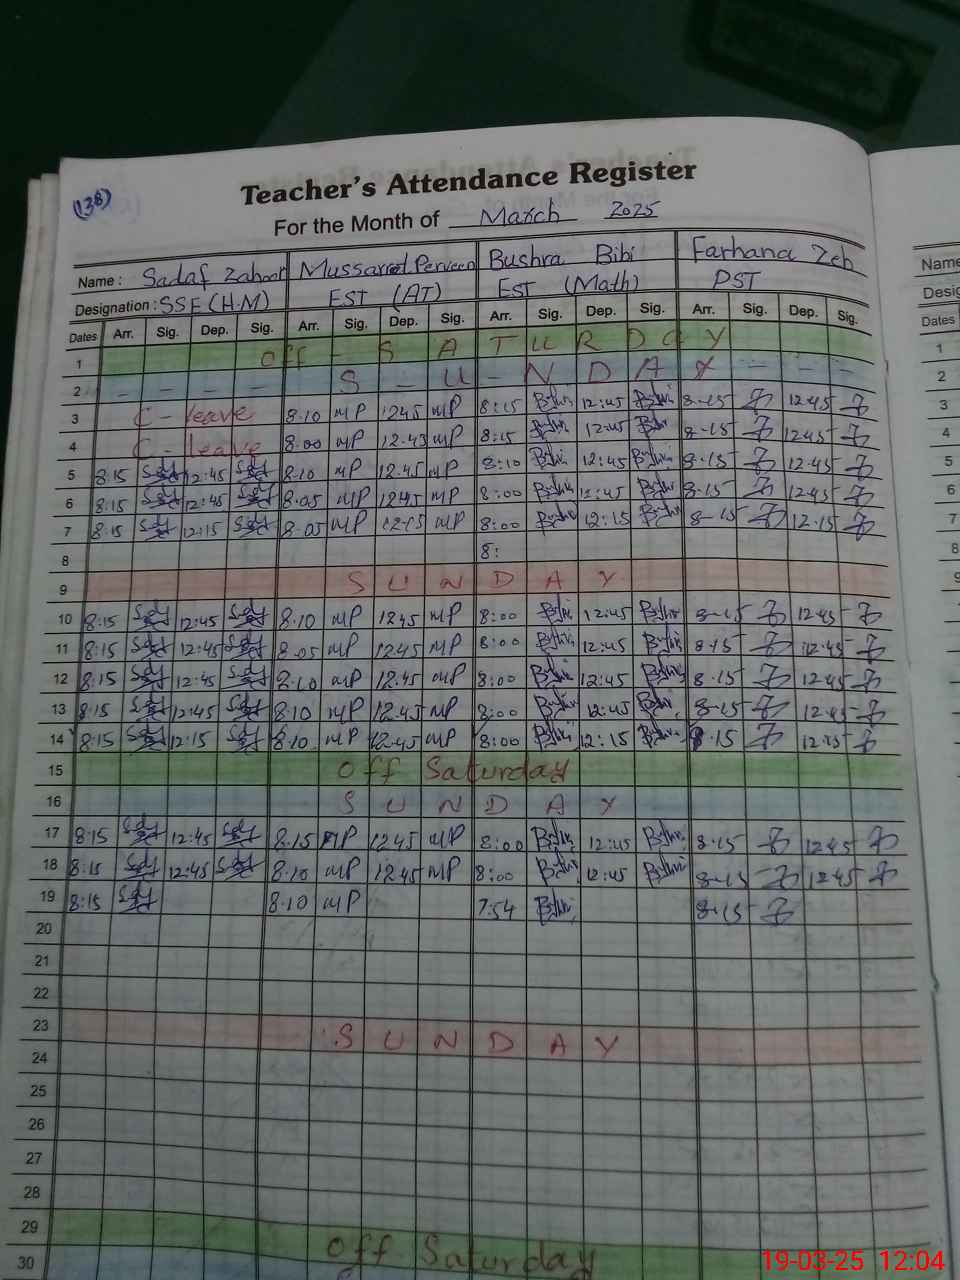 (138)
Teacher's Attendance Register
For the Month of March 2025
Name: Sadaf Zahoor Mussarrat Perveen Bushra Bibi Farhana Zeb
Designation: SSE (H.M) EST (AT) EST (Math) PST
Dates Arr. Sig. Dep. Sig. Arr. Sig. Dep. Sig. Arr. Sig. Dep. Sig. Arr. Sig. Dep. Sig.
1 Off - S A T U R D a Y
2 - - - - S - U - N D A Y - - -
3 C - leave 8.10 MP 12.45 MP 8:15 12:45 8-15 12.45
4 C - leave 8.00 MP 12.45 MP 8:15 12:45 8-15 12.45
5 8:15 12:45 8.10 MP 12.45 MP 8:10 12:45 8-15 12.45
6 8:15 12:45 8.05 MP 12.45 MP 8:00 12:45 8-15 12.45
7 8:15 12:15 8.05 MP 12.15 MP 8:00 12:15 8-15 12.15
8 8:
9 S U N D A Y
10 8:15 12:45 8.10 MP 12.45 MP 8:00 12:45 8-15 12.45
11 8:15 12:45 8.05 MP 12.45 MP 8:00 12:45 8.15 12.45
12 8:15 12:45 8.10 MP 12.45 MP 8:00 12:45 8.15 12.45
13 8:15 12:45 8.10 MP 12.45 MP 8:00 12:45 8-15 12.45
14 8:15 12:15 8.10 MP 12.45 MP 8:00 12:15 8.15
15 Off Saturday
16 S U N D A Y
17 8:15 12:45 8.15 MP 12.45 MP 8:00 12:45 8.15 12.45
18 8:15 12:45 8.10 MP 12.45 MP 8:00 12:45 8-15 12.45
19 8:15 8.10 MP 7:54 8-15
20
21
22
23 S U N D A Y
24
25
26
27
28
29 Off Saturday
30
Name
Desig
Dates
1
2
3
4
5
6
7
8
9
19-03-25 12:04